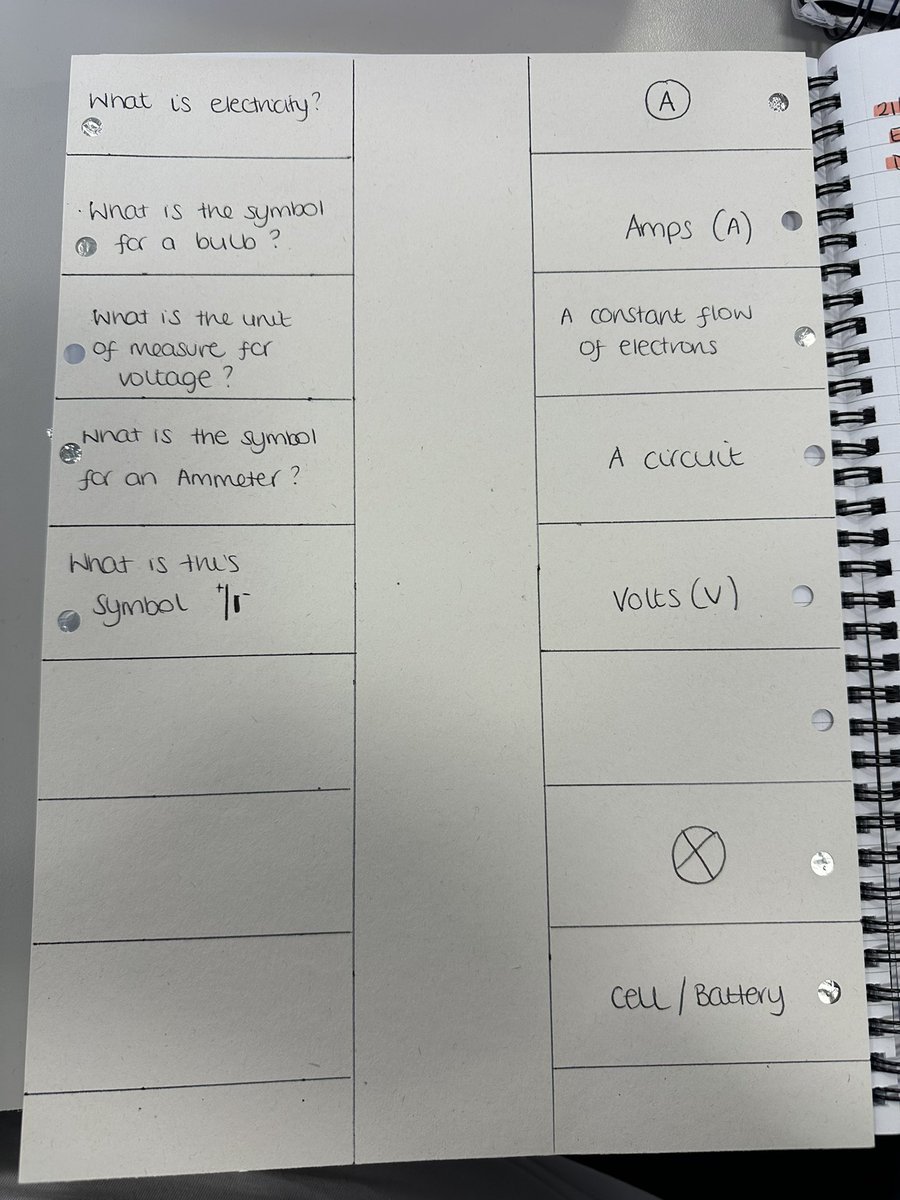 What is electricity?
What is the symbol
for a bulb?
What is the unit
of measure for
voltage?
What is the symbol
for an Ammeter?
What is this
symbol
A
Amps (A)
A constant flow
of electrons
A circuit
Volts (V)
Cell / Battery